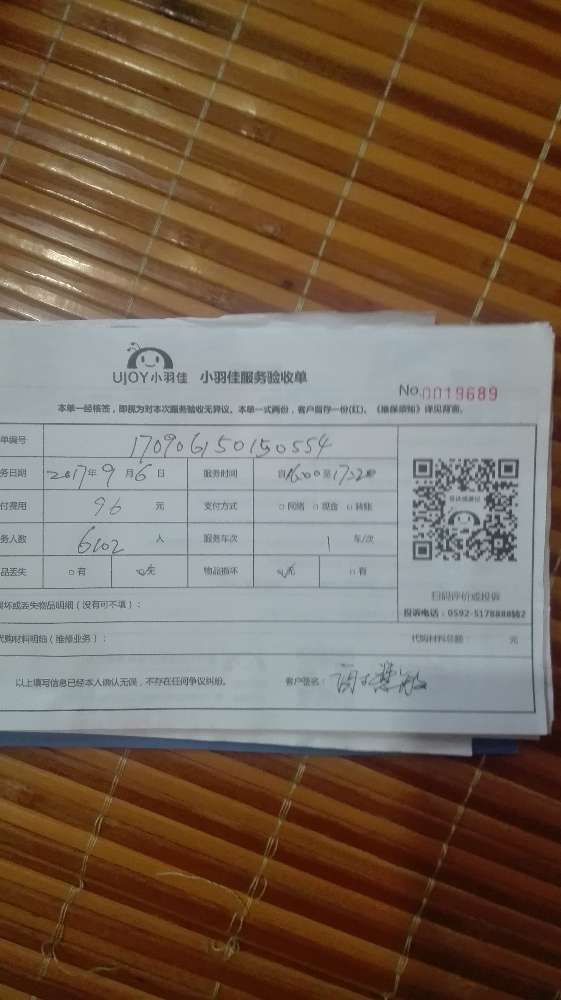 UJOY小羽佳 小羽佳服务验收单
No.0019689
本单一经核签，即视为对本次服务验收无异议。本单一式两份，客户留存一份(红)。《维保须知》详见背面。
单编号 170906150150554
务日期 2017年9月6日 服务时间 自16:00至17:20
付费用 96 元 支付方式 □网络 □现金 □转账
务人数 6102 人 服务车次 1 车/次
品丢失 □有 □无 物品损坏 □无 □有
扫码评价或投诉
损坏或丢失物品明细（没有可不填）：
投诉电话：0592-5178888转2
代购材料明细（维修业务）： 代购材料总额： 元
以上填写信息已经本人确认无误，不存在任何争议纠纷。 客户签名：